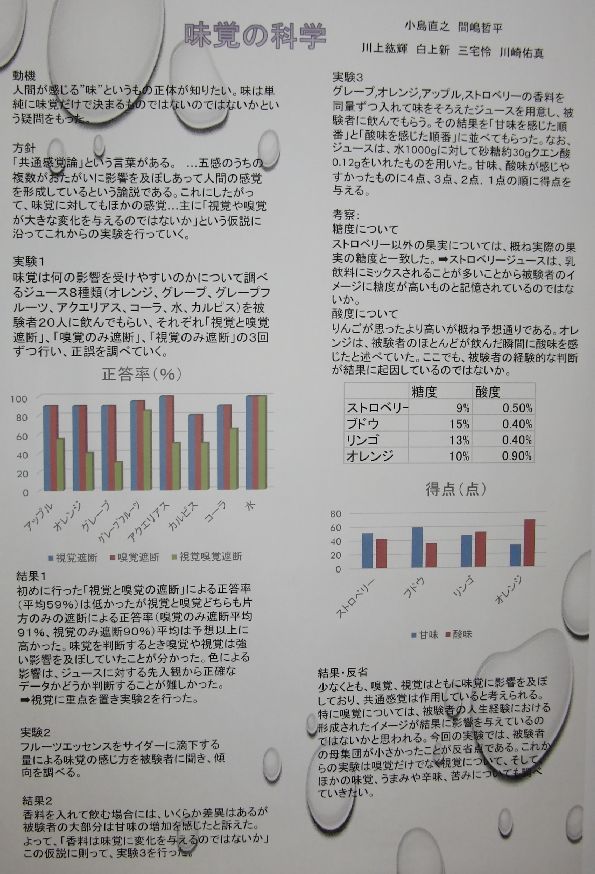 味覚の科学
小島直之 間嶋哲平
川上紘輝 白上新 三宅怜 川崎佑真
動機
人間が感じる"味"というもの正体が知りたい。味は単
純に味覚だけで決まるものではないのではないかとい
う疑問をもった。
方針
「共通感覚論」という言葉がある。 …五感のうちの
複数がおたがいに影響を及ぼしあって人間の感覚
を形成しているという論説である。これにしたがっ
て、味覚に対してもほかの感覚…主に「視覚や嗅覚
が大きな変化を与えるのではないか」という仮説に
沿ってこれからの実験を行っていく。
実験1
味覚は何の影響を受けやすいのかについて調べ
るジュース8種類(オレンジ、グレープ、グレープフ
ルーツ、アクエリアス、コーラ、水、カルピス)を被
験者20人に飲んでもらい、それぞれ「視覚と嗅覚
遮断」、「嗅覚のみ遮断」、「視覚のみ遮断」の3回
ずつ行い、正誤を調べていく。
正答率(%)
100
80
60
40
20
0
アップル
オレンジ
グレープ
グレープフルーツ
アクエリアス
カルピス
コーラ
水
視覚遮断 嗅覚遮断 視覚嗅覚遮断
結果1
初めに行った「視覚と嗅覚の遮断」による正答率
(平均59%)は低かったが視覚と嗅覚どちらも片
方のみの遮断による正答率(嗅覚のみ遮断平均
91%、視覚のみ遮断90%)平均は予想以上に
高かった。味覚を判断するとき嗅覚や視覚は強
い影響を及ぼしていたことが分かった。色による
影響は、ジュースに対する先入観から正確な
データかどうか判断することが難しかった。
➡視覚に重点を置き実験2を行った。
実験2
フルーツエッセンスをサイダーに滴下する
量による味覚の感じ方を被験者に聞き、傾
向を調べる。
結果2
香料を入れて飲む場合には、いくらか差異はあるが
被験者の大部分は甘味の増加を感じたと訴えた。
よって、「香料は味覚に変化を与えるのではないか」
この仮説に則って、実験3を行った。
実験3
グレープ,オレンジ,アップル,ストロベリーの香料を
同量ずつ入れて味をそろえたジュースを用意し、被
験者に飲んでもらう。その結果を「甘味を感じた順
番」と「酸味を感じた順番」に並べてもらった。なお、
ジュースは、水1000gに対して砂糖約30gクエン酸
0.12gをいれたものを用いた。甘味、酸味が感じや
すかったものに4点、3点、2点、1点の順に得点を
与える。
考察:
糖度について
ストロベリー以外の果実については、概ね実際の果
実の糖度と一致した。➡ストロベリージュースは、乳
飲料にミックスされることが多いことから被験者のイ
メージに糖度が高いものと記憶されているのではな
いか。
酸度について
りんごが思ったより高いが概ね予想通りである。オレ
ンジは、被験者のほとんどが飲んだ瞬間に酸味を感
じたと述べていた。ここでも、被験者の経験的な判断
が結果に起因しているのではないか。
糖度 酸度
ストロベリー 9% 0.50%
ブドウ 15% 0.40%
リンゴ 13% 0.40%
オレンジ 10% 0.90%
得点(点)
80
60
40
20
0
ストロベリー
ブドウ
リンゴ
オレンジ
甘味 酸味
結果・反省
少なくとも、嗅覚、視覚はともに味覚に影響を及ぼ
しており、共通感覚は作用していると考えられる。
特に嗅覚については、被験者の人生経験における
形成されたイメージが結果に影響を与えているの
ではないかと思われる。今回の実験では、被験者
の母集団が小さかったことが反省点である。これか
らの実験は嗅覚だけでな視覚について、そして、
ほかの味覚、うまみや辛味、苦みについても調べ
ていきたい。